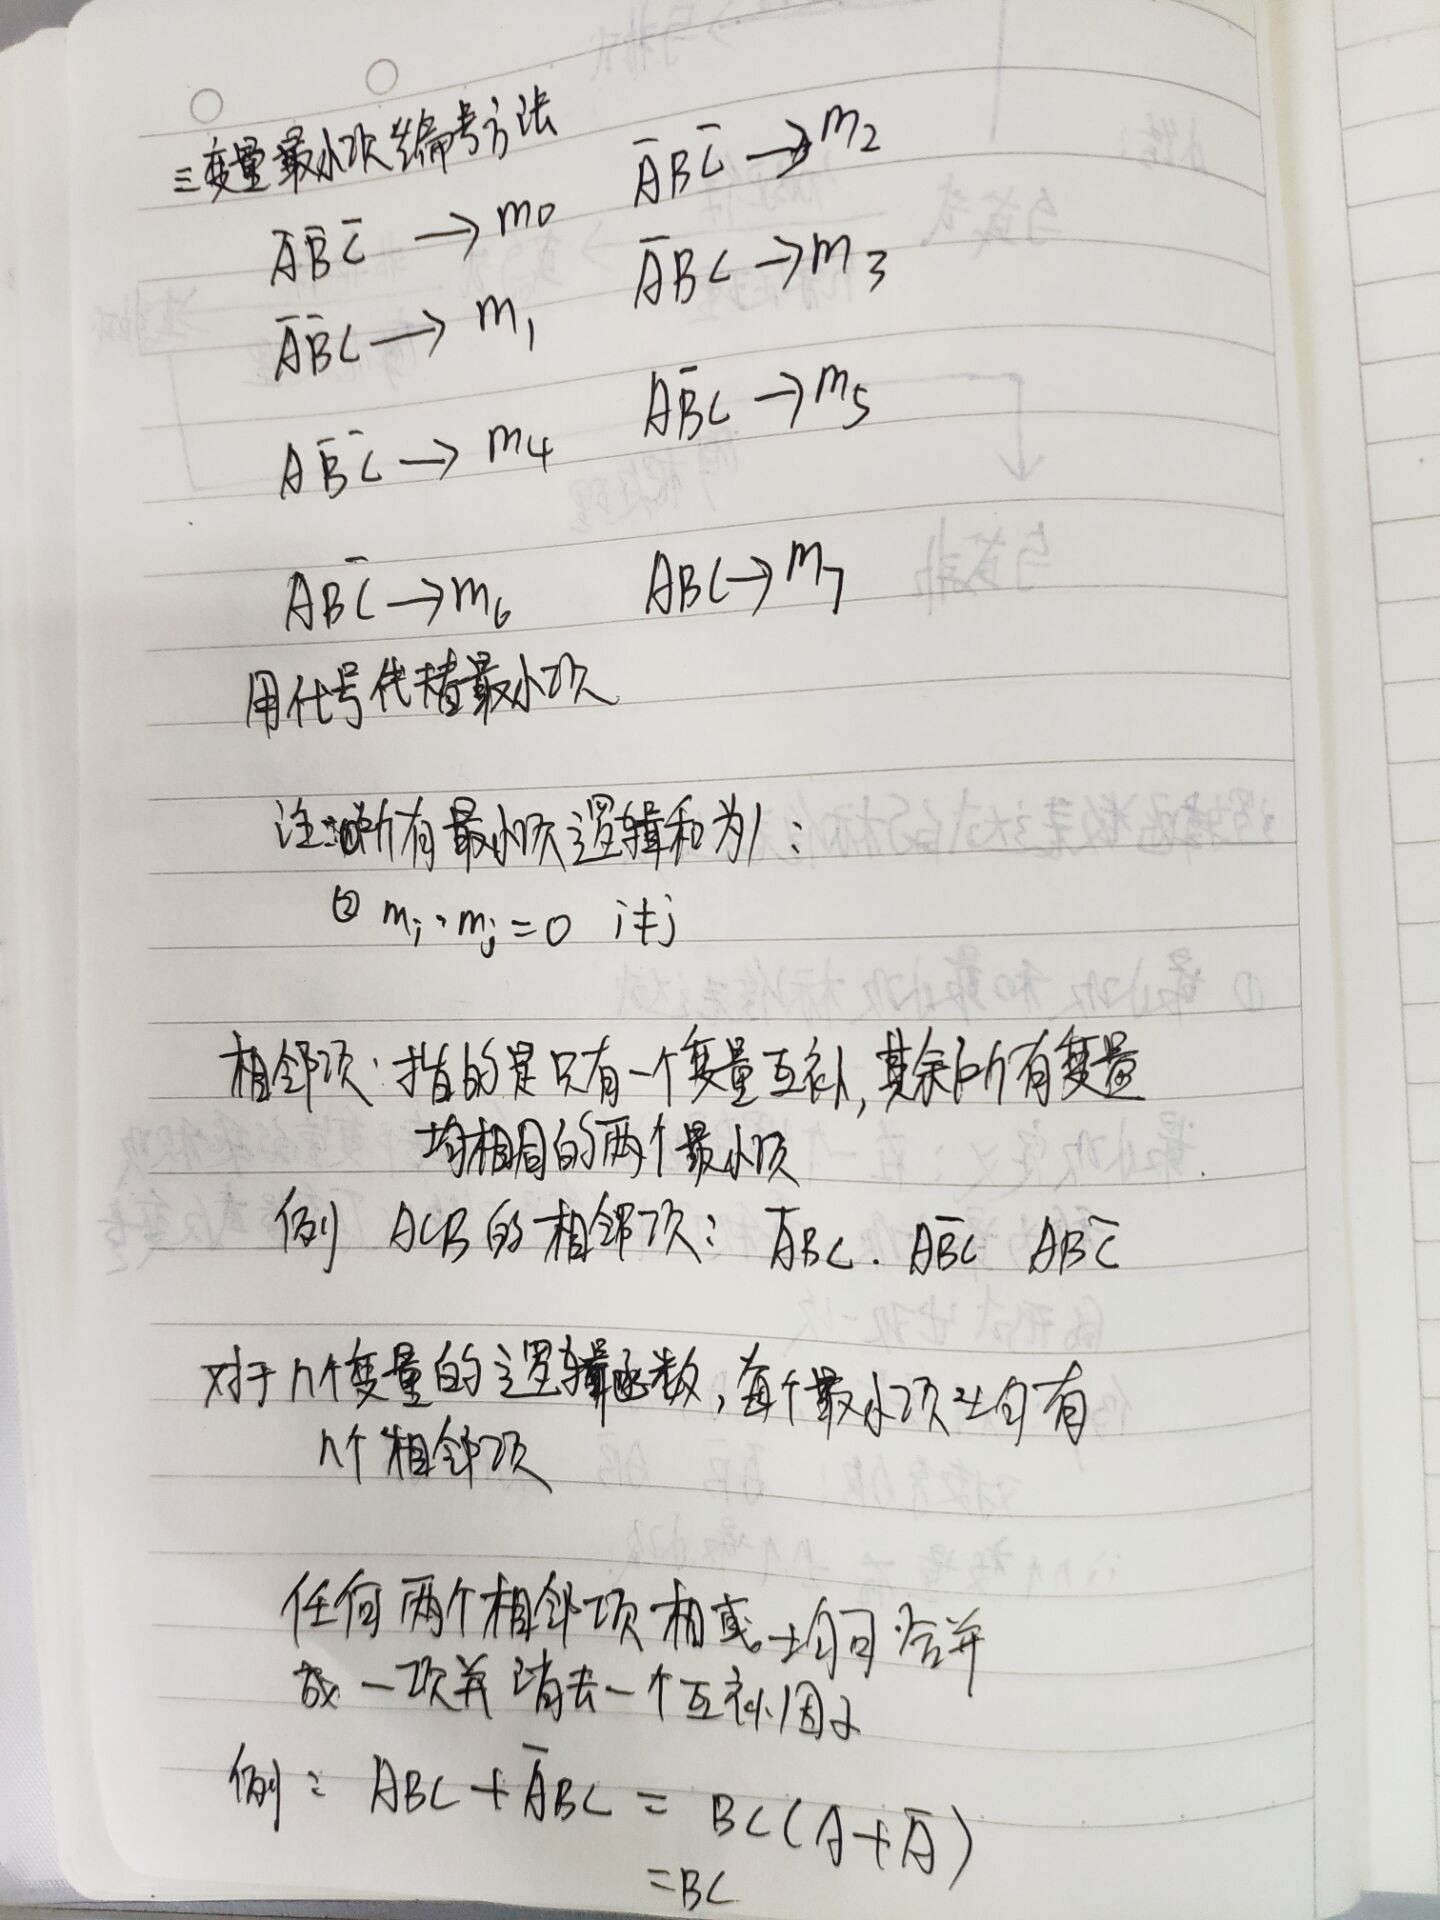 三变量最小项编号方法
A̅B̅C̅ → m₀  A̅BC̅ → m₂
A̅B̅C → m₁  A̅BC → m₃
AB̅C̅ → m₄  AB̅C → m₅
ABC̅ → m₆  ABC → m₇
用代号代替最小项
注:①所有最小项逻辑和为1:
② mᵢ·mⱼ=0 i≠j
相邻项:指的是只有一个变量互补,其余所有变量
均相同的两个最小项
例 ACB的相邻项: A̅BC. AB̅C ABC̅
对于n个变量的逻辑函数,每个最小项均有
n个相邻项
任何两个相邻项相或均可合并
成一项并消去一个互补因子
例: ABC+A̅BC = BC(A+A̅)
=BC